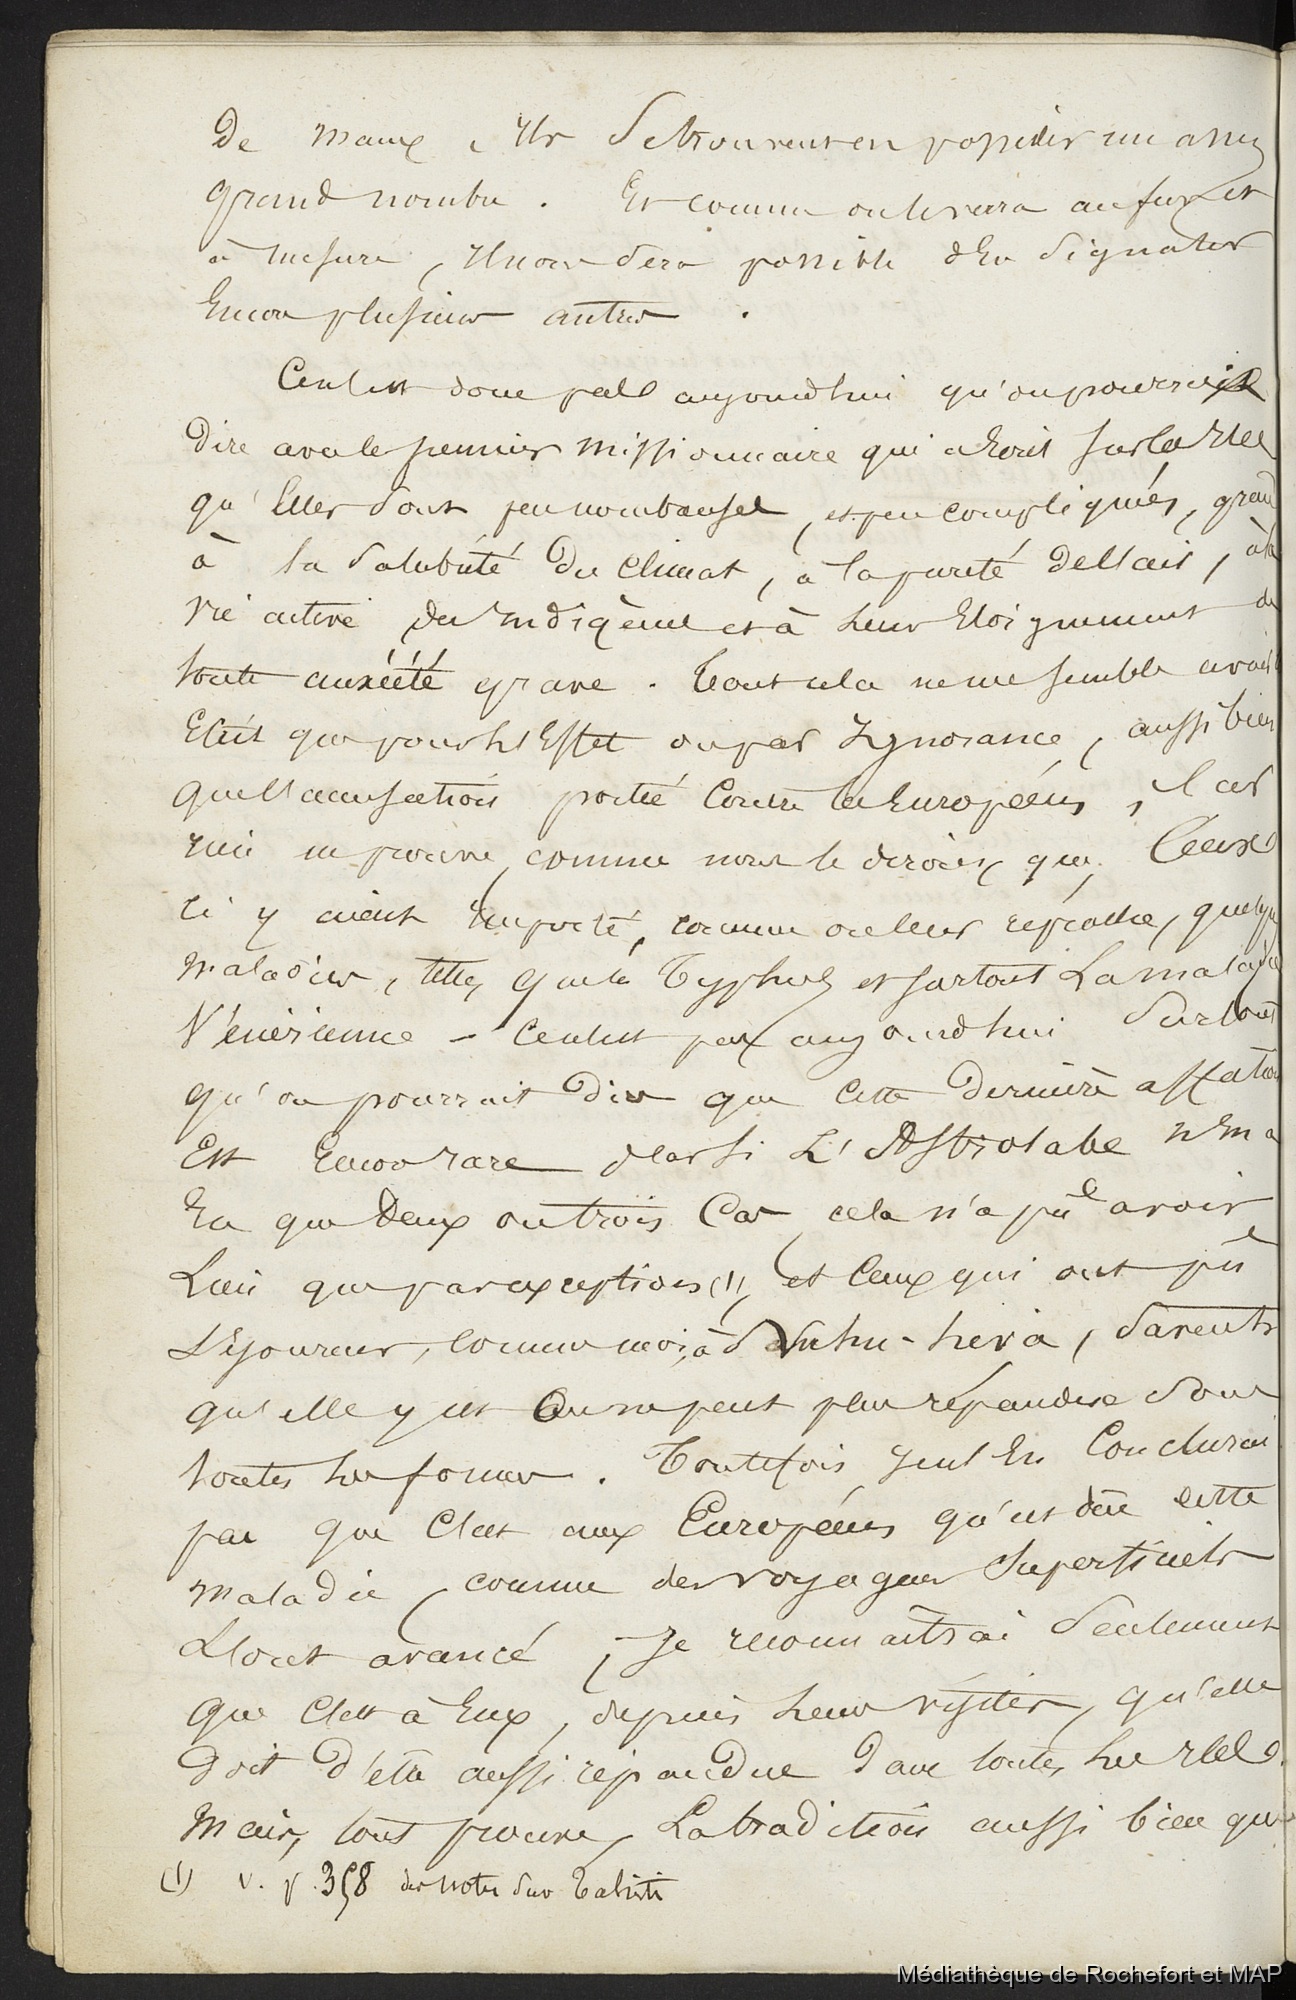 De maux, Ils se trouvent en posséder un assez
grand nombre. Et comme on le verra au fur et
à mesure, il nous sera possible d'en signaler
Encore plusieurs autres.
Ce n'est donc pas aujourd'hui qu'on pourrait
Dire avec le premier missionnaire qui a Ecrit sur les Iles
qu'Elles sont peu nombreuses, et peu compliquées, grace
à la salubrité du climat, à la pureté de l'air, à la
vie active des Indigènes et à leur Eloignement de
toute anxiété grave. Tout cela ne me semble avoir
Eté dit que pour l'Effet ou par Ignorance, aussi bien
que l'accusation portée Contre les Européens, Car
rien ne prouve, comme nous le dirons, que Ceux
ci y aient importé, comme on leur reproche, quelques
maladies, telles que le Typhus et surtout La maladie
Vénérienne – Ce n'est pas aujourd'hui surtout
qu'on pourrait dire que Cette Dernière affection
Est Encore rare car si L'Astrolabe n'En a
Eu que Deux ou trois Cas, cela n'a pû avoir
Lieu que par exception (1), et Ceux qui ont pû
Séjourner, comme moi, à Nuhu-hiva, savent
qu'elle y est On ne peut plus répandue sous
toutes les formes. Toutefois je n'En Conclurai
pas que C'est aux Européens qu'est dûe cette
maladie, comme des voyageurs Superficiels
L'ont avancé; Je reconnaîtrai seulement
que C'est à Eux, depuis leurs visites, qu'elle
Doit D'être aussi répandue Dans toutes les Iles.
Mais, tout prouve, La tradition aussi bien que
(1) V. p. 358 des notes sur Tahiti
Médiathèque de Rochefort et MAP